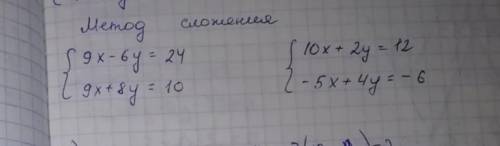 Метод сложения
9x - 6y = 24
9x + 8y = 10
10x + 2y = 12
-5x + 4y = -6